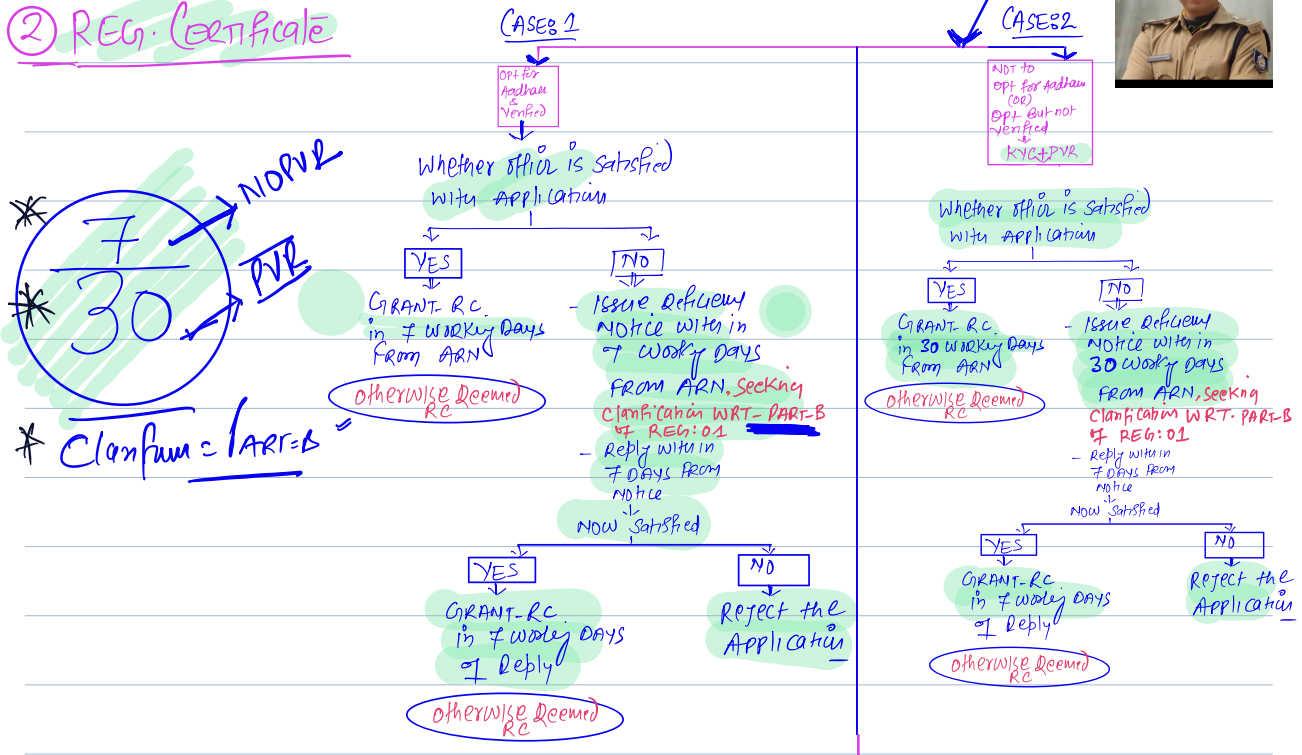 2 REG. CERTIFICATE
CASE: 1
Opt for
Aadhaar
&
Verified
Whether officer is satisfied
with Application
YES
GRANT-RC.
in 7 working Days
From ARN
Otherwise Deemed
RC
NO
- Issue Deficiency
Notice with in
7 worky Days
From ARN, seeking
Clarification WRT-PART-B
of REG:01
- Reply within
7 DAYS From
Notice
NOW Satisfied
YES
GRANT-RC.
in 7 working DAYS
of Reply
Otherwise Deemed
RC
NO
Reject the
Application
CASE: 2
NOT to
Opt for Aadhaar
(OR)
Opt But not
Verified
KYC+PVR
Whether officer is Satisfied
with Application
YES
GRANT-RC.
in 30 working Days
From ARN
Otherwise Deemed
RC
NO
- Issue Deficiency
Notice with in
30 worky Days
From ARN, seeking
Clarification WRT. PART-B
of REG:01
- Reply within
7 DAYS From
Notice
NOW Satisfied
YES
GRANT-RC.
in 7 working DAYS
of Reply
Otherwise Deemed
RC
NO
Reject the
Application
7
30
NO PVR
PVR
= PART-B =